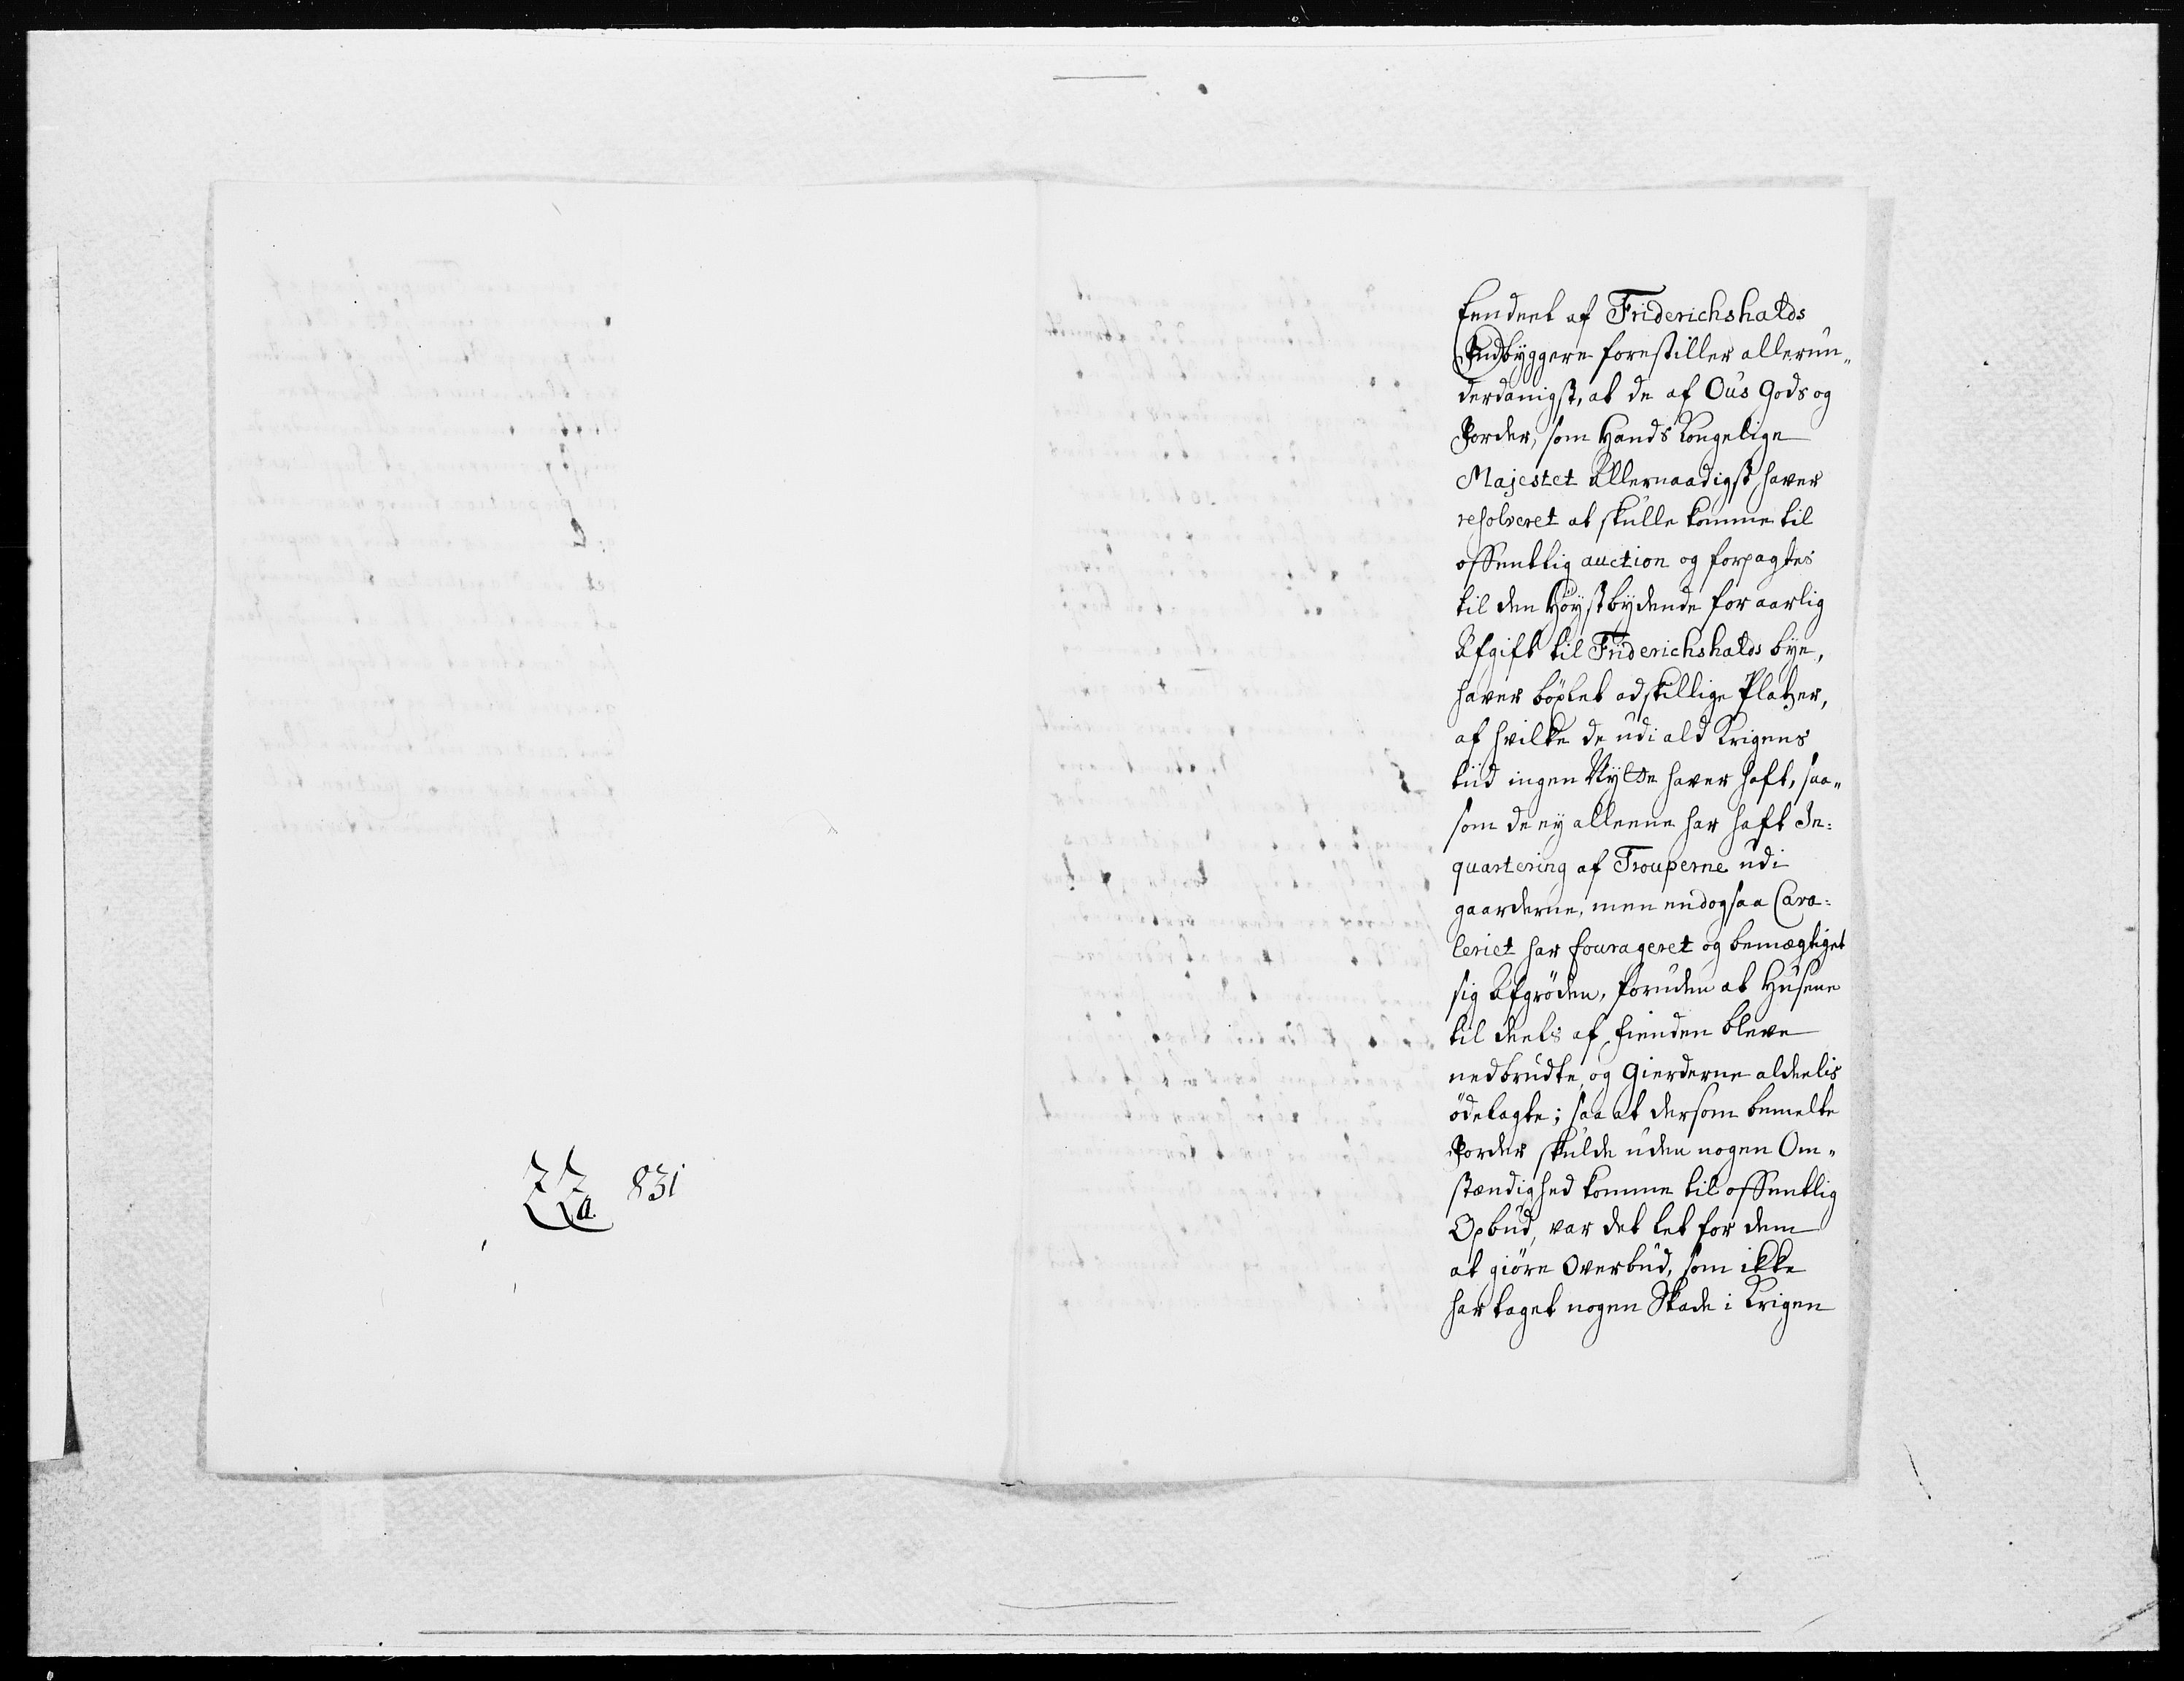 Eendeel af Friderichshalds
Indbyggere forestiller allerun„
derdanigst, at de af Ous Gods og
Jorder, som Hands Kongelige
Majestet Allernaadigst haver
resolveret at skulle komme til
offentlig auction og forpagtes
til den Høystbydende for aarlig
Afgift til Friderichshalds bye,
haverböxlet adskillige Platzer,
af hvilke de udi ald Krigens
tiid ingen Nytte haver haft, saa„
som de ey alleene har haft In:
quartering af Trouperne udi
gaarderne, men endogsaa Cava:
leriet har fourageret og bemægtiget
sig Afgröden, foruden at Husene
til deels af Fienden bleve
nedbrudte, og Gierderne aldeelis
ödelagte; saa at dersom bemelte
Jorder skulde uden nogen Om„
stændighed komme til offentlig
Opbud, var det let for dem
at giöre Overbud, som ikke
har taget nogen Skade i Krigen
ZZ a. 831